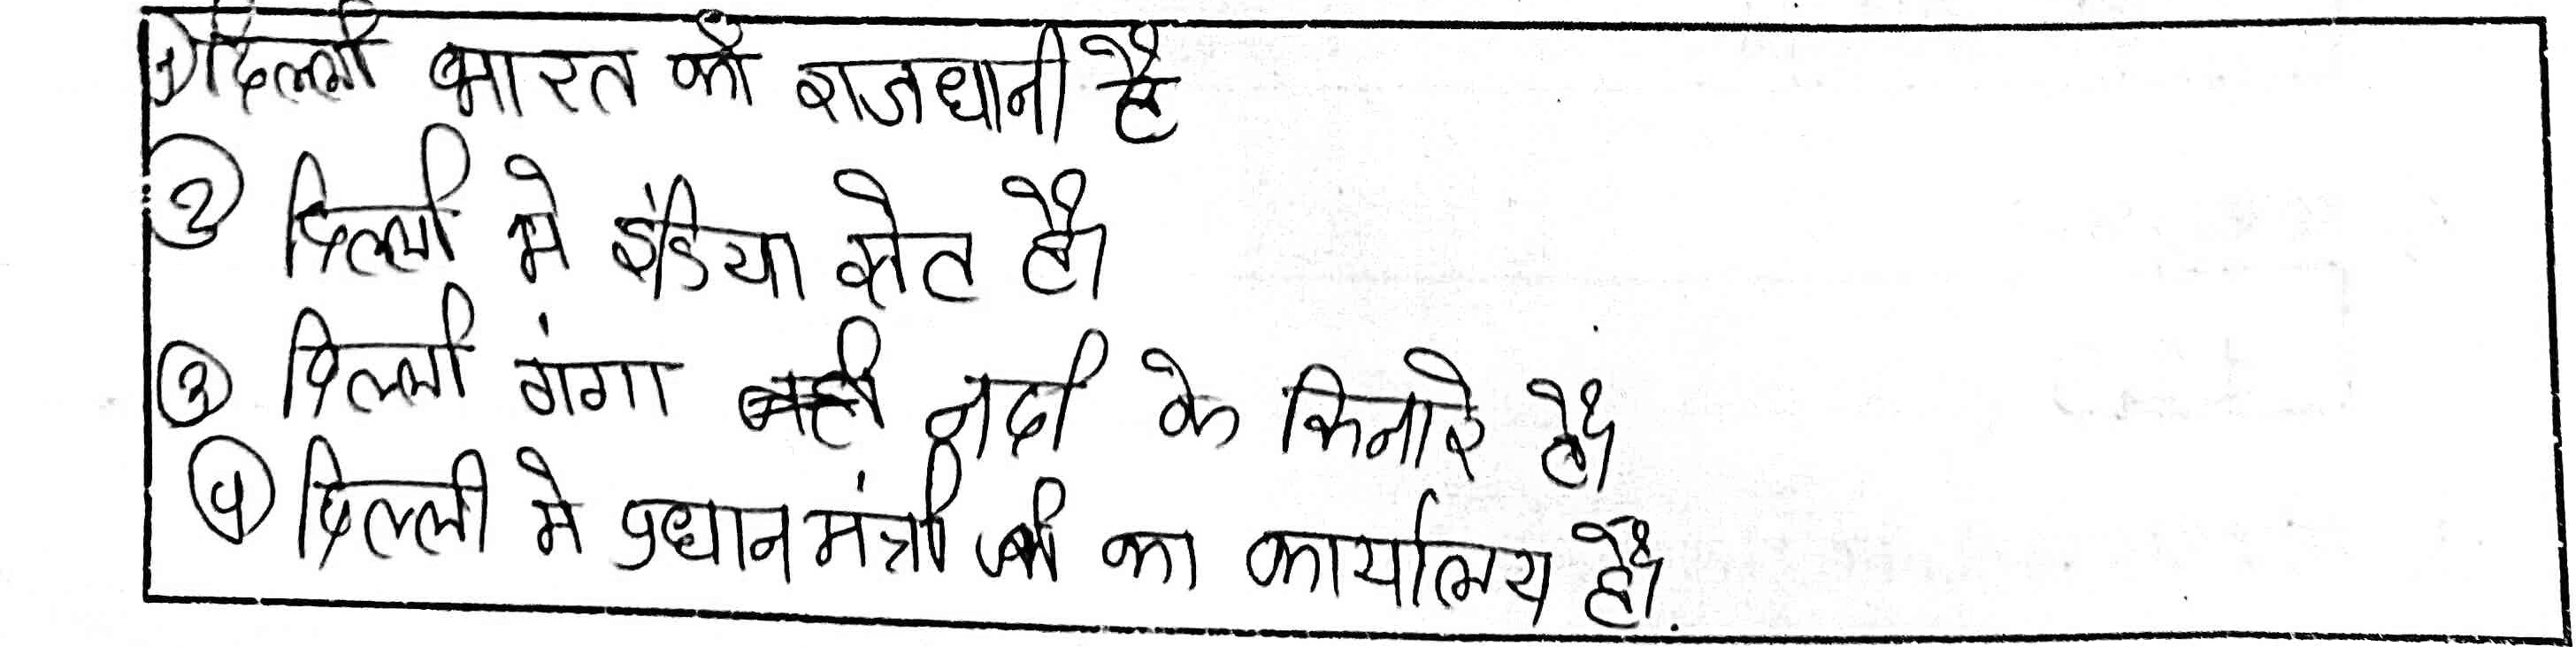 ① दिल्ली भारत की राजधानी है
② दिल्ली मे इंडिया गेट है।
③ दिल्ली गंगा नदी के किनारे है।
④ दिल्ली मे प्रधानमंत्री जी का कार्यालय है।.